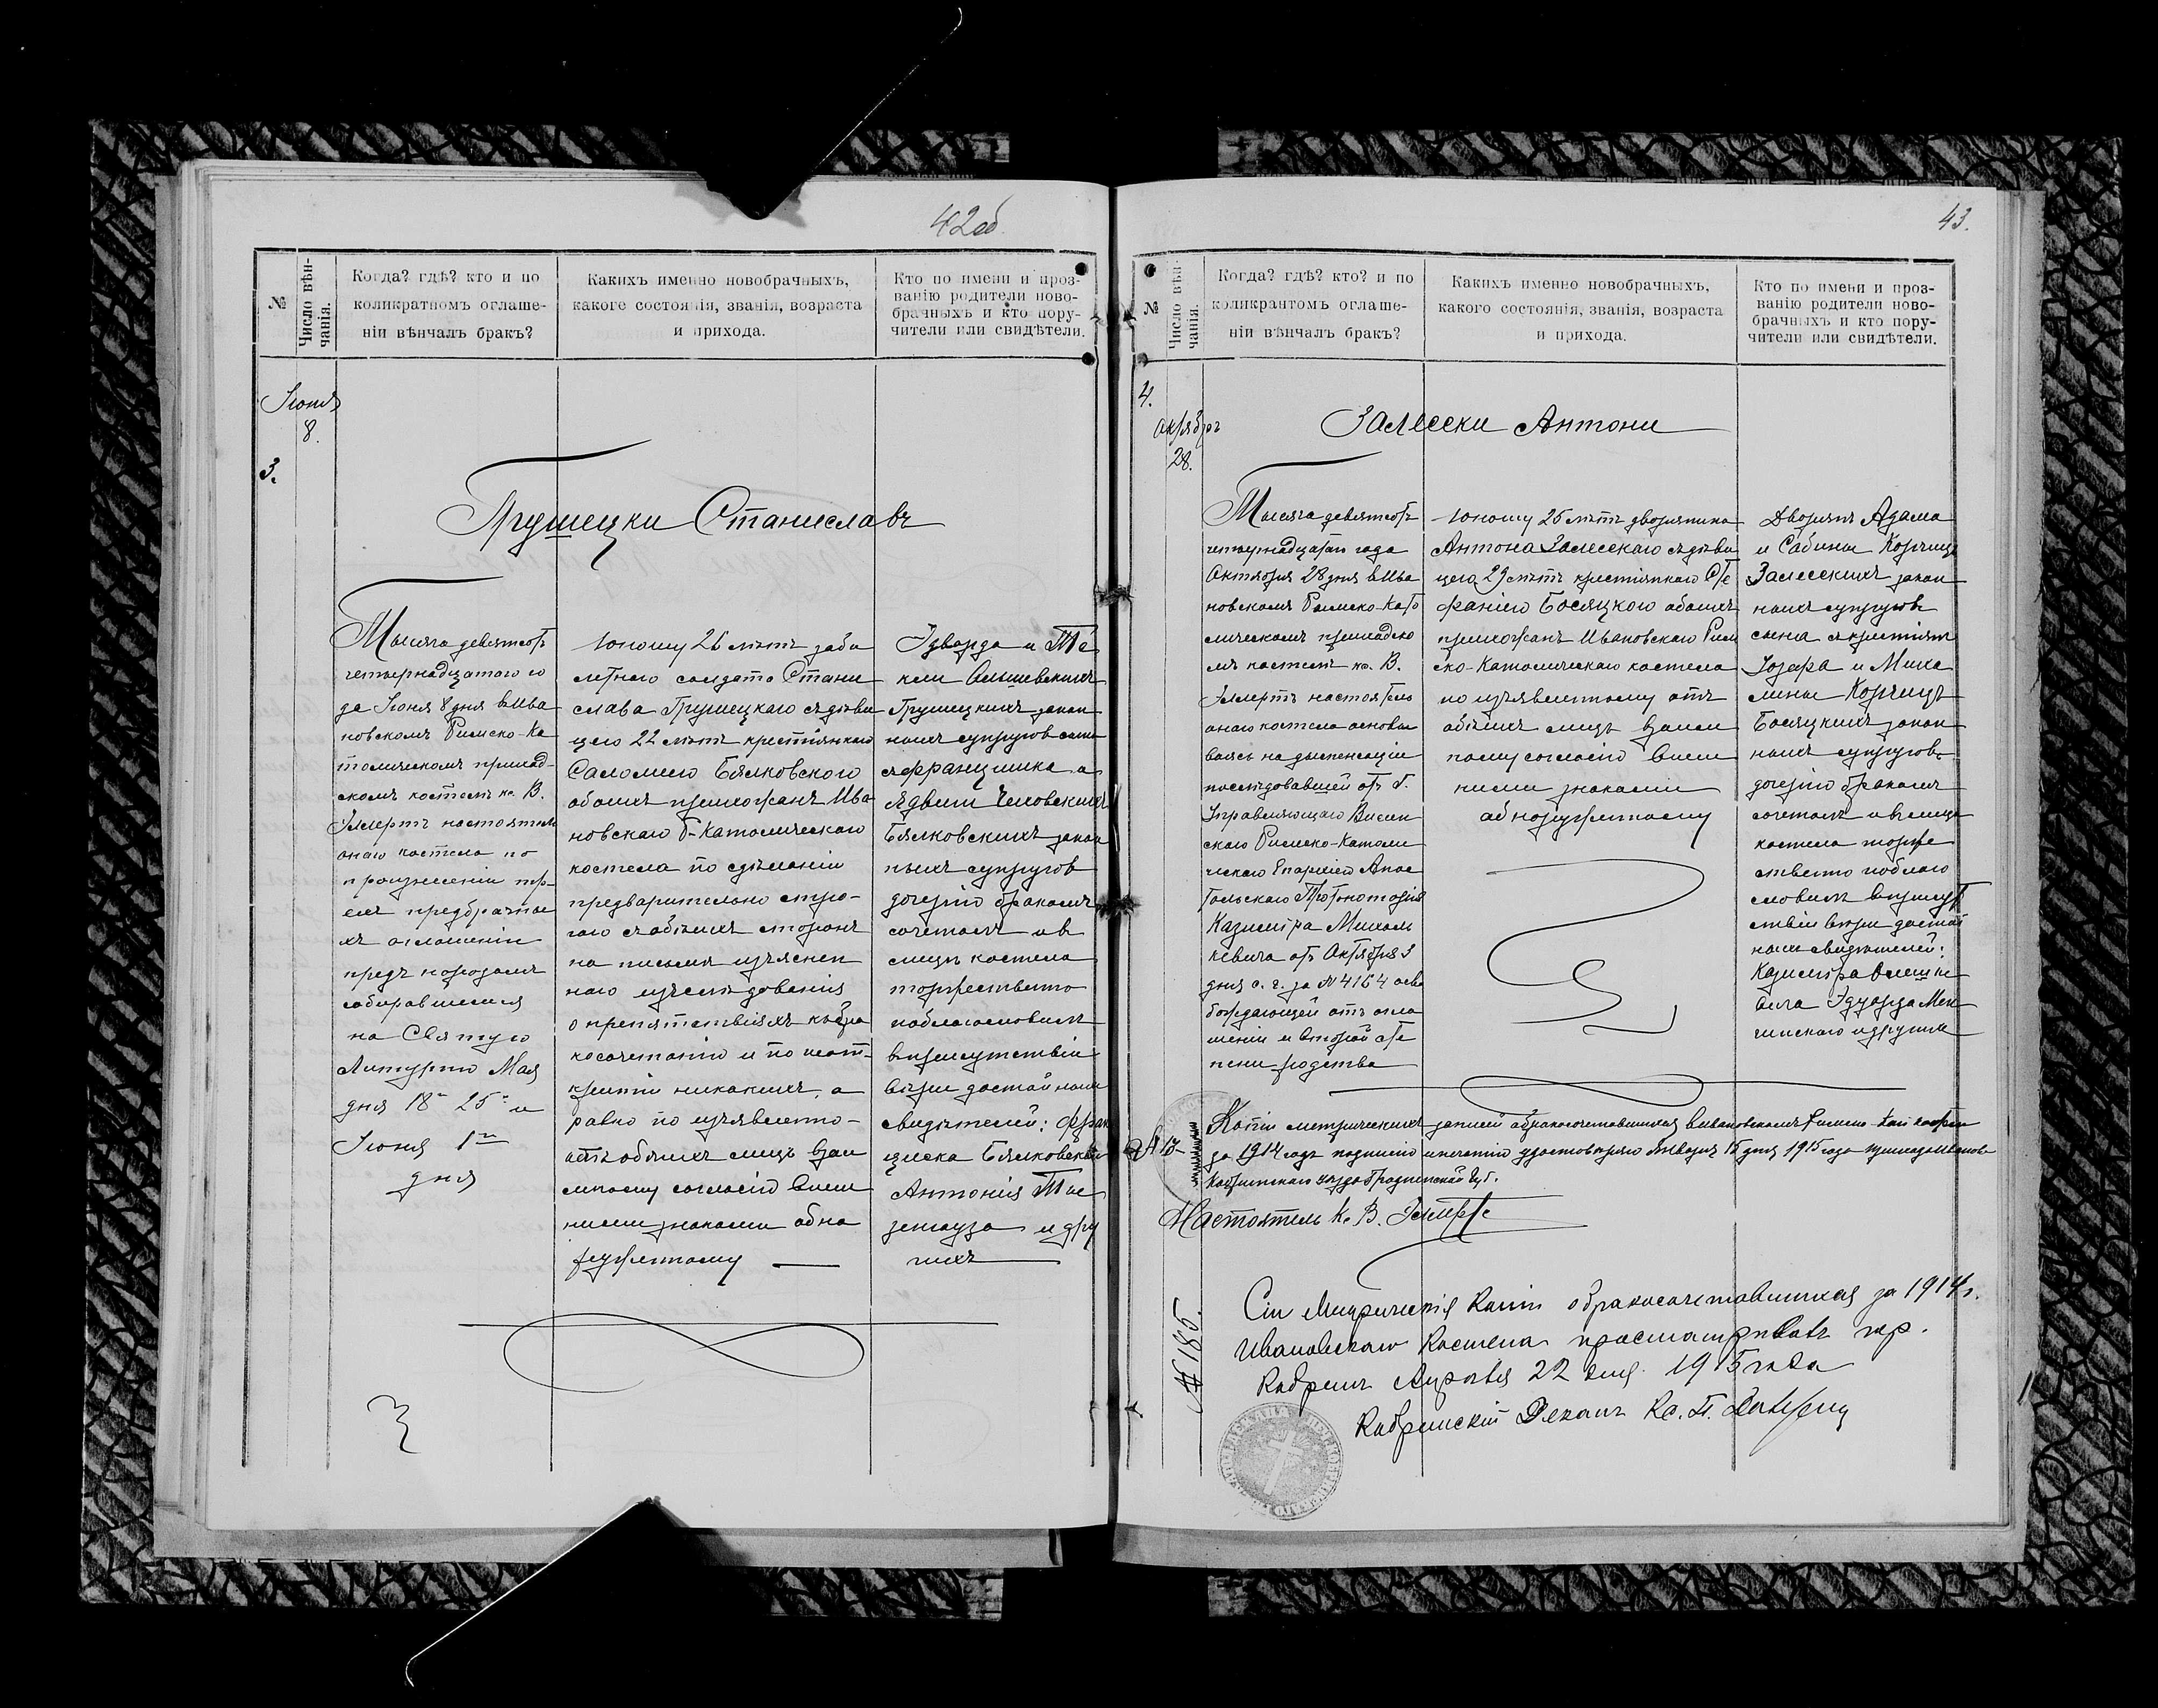 42об.
№
Число вѣн-
чанія.
Когда? гдѣ? кто и по
коликратномъ оглаше-
ніи вѣнчалъ бракъ?
Какихъ именно новобрачныхъ,
какого состоянія, званія, возраста
и прихода.
Кто по имени и проз-
ванію родители ново-
брачныхъ и кто пору-
чители или свидѣтели.
Іюня
8.
3.
Грушецки Станиславъ
Тысяча девятсотъ
четырнадцатого го
да Іюня 8 дня въ Ива
новскомъ Римско-Ка
толическомъ приход-
скомъ костелѣ кс. В.
настоятель
онаго костела по
произнесеніи тр-
ехъ предбрачны
хъ оглашеній
предъ народомъ
собравшимся
на Святую
Литургію Мая
дня 18го 25го и
Іюня 1го
дня
Юношу 26 лѣтъ
солдата Стани
слава Грушецкаго съ дѣви
цею 22 лѣтъ крестьянкою
Саломею Бялковского
обоихъ прихожанъ Ива
новскаго Р-Католическаго
костела по сдѣланіи
предварительно стро-
гаго съ обѣихъ сторонъ
на письмѣ изъяснен
наго изслѣдованія
о препятствіяхъ къ бра
косочетанію и по неот-
крытіи никакихъ, а
равно по изъявленно-
отъ обѣихъ лицъ взаи
мному согласію внѣш
ними знаками обна
руженному
Эдварда и Те
кли Ольшевскихъ
Грушецкихъ закон
ныхъ супруговъ сына
съ Францишка а
Ядвиги
Бялковскихъ закон
ныхъ супруговъ
дочерью бракомъ
сочеталъ и въ
лицѣ костела
торжественно
поблагословилъ
въ присутствіи
вѣры достойныхъ
свидѣтелей: Фран
циска Бялковскаго
Антонія Ти
зенгауза и дру
гихъ
43.
№
Число вѣн-
чанія.
Когда? гдѣ? кто? и по
коликрантомъ оглаше-
ніи вѣнчалъ бракъ?
Какихъ именно новобрачныхъ,
какого состоянія, званія, возраста
и прихода.
Кто по имени и проз-
ванію родители ново-
брачныхъ и кто пору-
чители или свидѣтели.
4.
октября
28.
Залески Антони
Тысяча девятсотъ
четырнадцатаго года
Октября 28 дня въ Ива
новскомъ Римско-Като
лическомъ приходско
мъ костелѣ кс. В.
настоятель
онаго костела основы
ваясь на диспенсаціи
послѣдовавшей отъ Г.
Управляющаго Вилен
скою Римско-Католи
ческою Епархіею Апос
тольскаго Протонотарія
Казимира Михаль
кевича отъ Октября 3
дня с. г. за № 4164 осво
бождающей отъ огла
шеній и второй сте
пени родства
Юношу 26 лѣтъ дворянина
Антона Залескаго съ дѣви
цею 29 лѣтъ крестьянкою Сте
фанію Босяцкою обоихъ
прихожанъ Ивановскаго Рим
ско-Католическаго костела
по изъявленному отъ
обѣихъ лицъ взаим
ному согласію внѣш
ними знаками
обнаруженному
Дворянъ Адама
и Сабины Корчицъ
Залескихъ закон
ныхъ супруговъ
сына съ крестьян
Іозефа и Миха
лины Корчицъ
Босяцкихъ закон
ныхъ супруговъ
дочерью бракомъ
сочеталъ и въ лицѣ
костела торже
ственно поблаго
словилъ въ присут
ствіи вѣры достой
ныхъ свидѣтелей:
Казимира
Эдуарда
и другихъ
№ 15
Копіи метрическихъ записей о бракосочетавшихся въ Ивановскомъ Римско-Кат костелѣ
за 1914 годъ подписью и печатью удостовѣряю Января 15 дня 1915 года
Кобринскаго уѣзда Гродненской Губ.
Настоятель Кс. В.
№ 185.
Сіи Метрическія Копіи о бракосочетавшихся за 1914 г.
Ивановскаго Костела просматривалъ гор.
Кобринъ 22 дня 1915 года
Кобринскій Деканъ Кс.